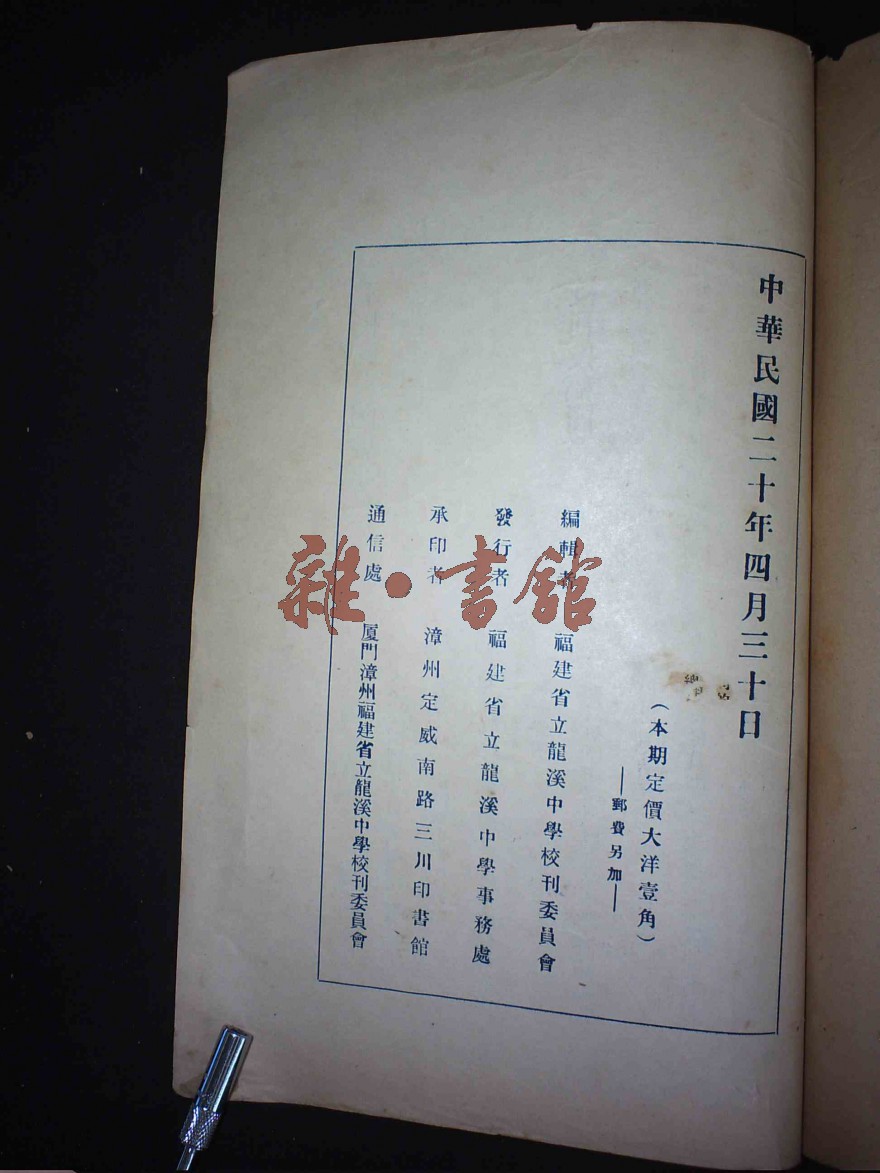 中華民國二十年四月三十日
（本期定價大洋壹角）
—郵費另加—
編輯者 福建省立龍溪中學校刊委員會
發行者 福建省立龍溪中學事務處
承印者 漳州定威南路三川印書館
通信處 厦門漳州福建省立龍溪中學校刊委員會
雜·書館